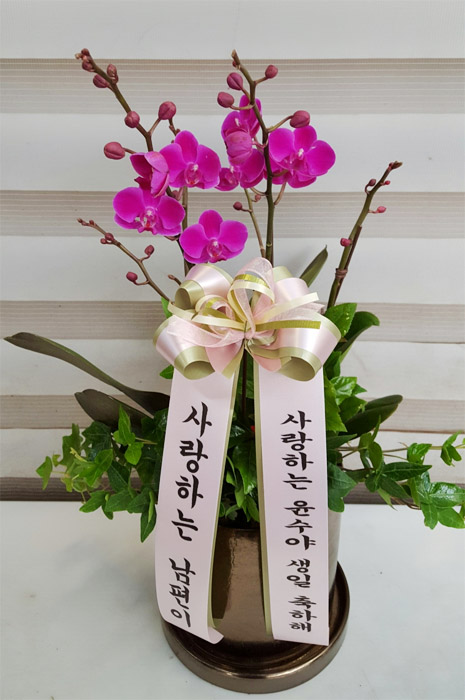 사랑하는 남편이
사랑하는 윤수야 생일 축하해